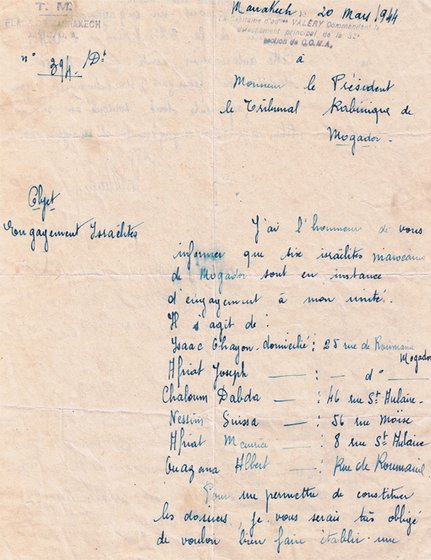 T. M.
Marrakech le 20 Mars 1944
Le Capitaine d'adm VALÉRY Commandant le
détachement principal de la 32e
section de C.O.M.A.
n° 394 /Dt
à
Monsieur le Président
le Tribunal Rabinique de
Mogador.
Objet
Engagement Israëlites
J'ai l'honneur de vous
informer que six israëlites marocains
de Mogador sont en instance
d'engagement à mon unité.
Il s'agit de :
Isaac Chayon domicilié : 25 rue de Roumanie
Mogador
Afriat Joseph — : — d° —
Chaloum Dabda — : 46 rue St Hulaire
Nessim Suissa — : 56 rue Moïse
Afriat Meurice — : 8 rue St Hulaire
Ouazana Albert — Rue de Roumanie
Pour me permettre de constituer
les dossiers je vous serais très obligé
de vouloir bien faire établir une